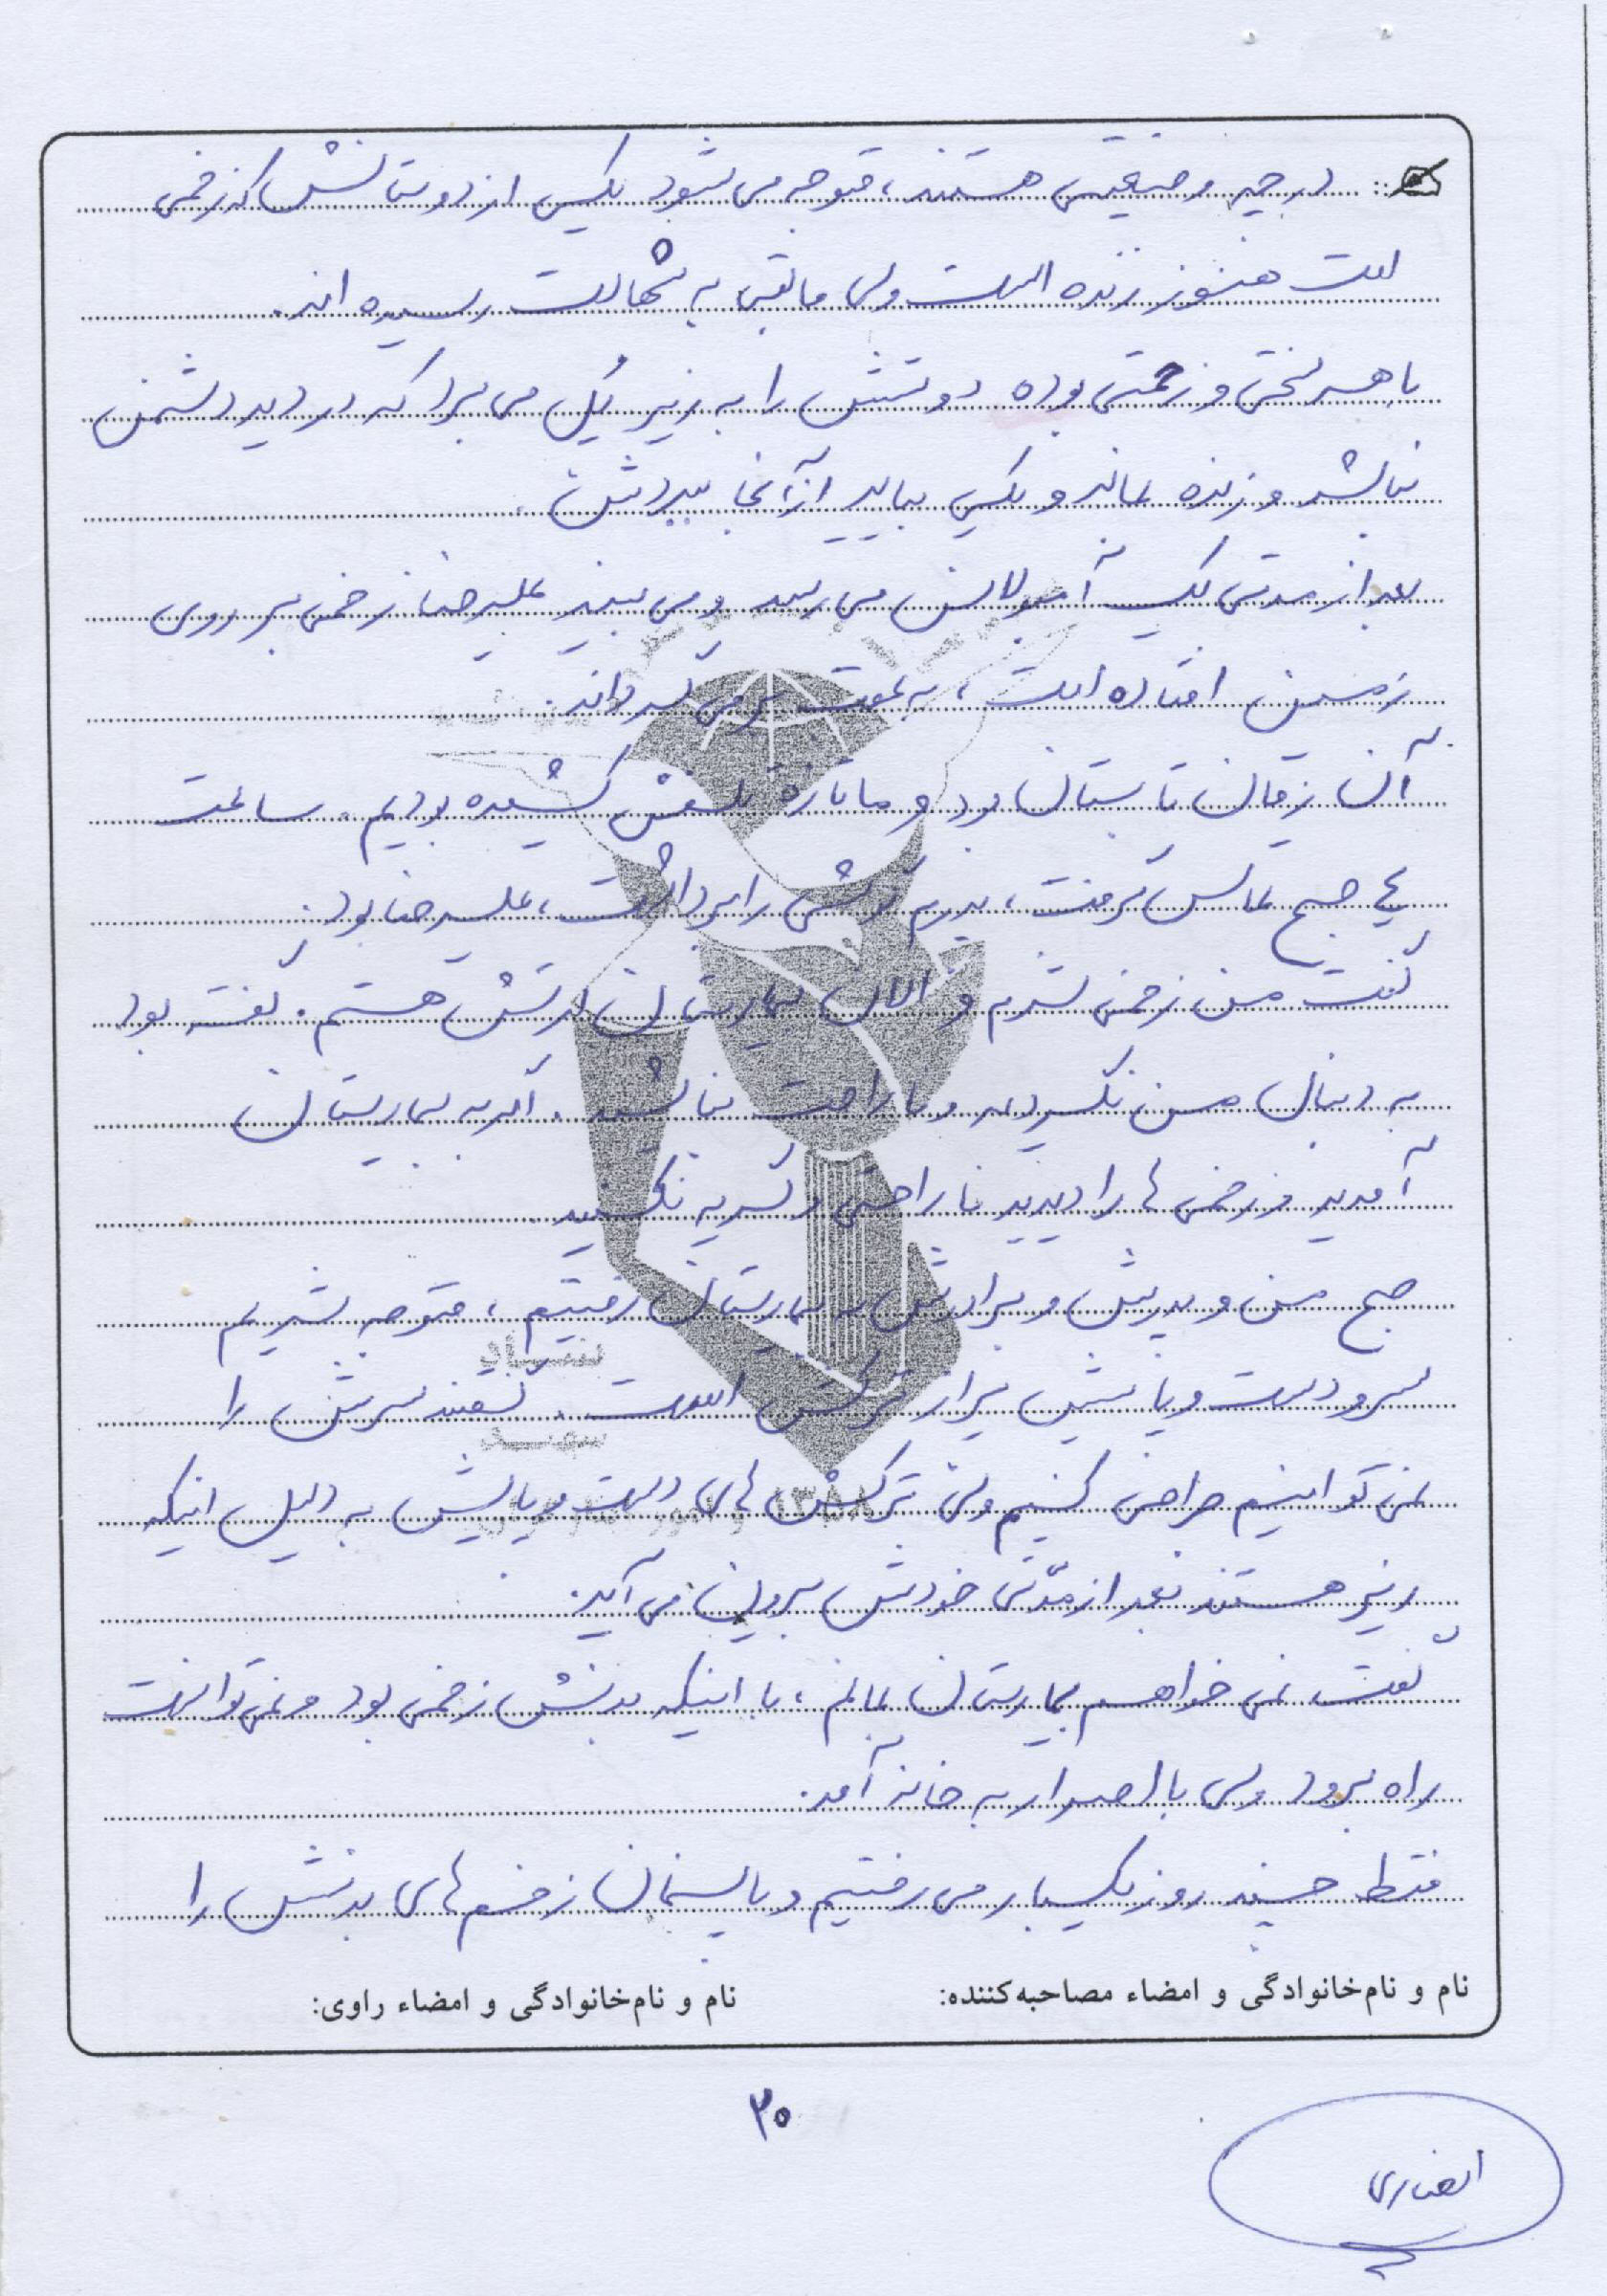 در چه وضعیتی هستند، متوجه می شود یکی از دوستانش که زخمی
است هنوز زنده است ولی مابقی به شهادت رسیده اند.
با هر سختی و زحمتی بوده دوستش را به زیر پل می برد که در دید دشمن
نباشد و زنده بماند و یکی بیاید از آنجا ببردش.
بعد از مدتی یک آمبولانس می رسد و می بیند علیرضا زخمی بر روی
زمین افتاده است، به عقب بر می گرداند.
آن زمان تابستان بود و ما تازه تلفن کشیده بودیم. ساعت
۴ صبح تماس گرفت، پدرم گوشی را برداشت، علیرضا بود.
گفت من زخمی شدم و الان بیمارستان ارتش هستم. گفته بود
به دنبال من نگردید و ناراحت نباشید. اگر به بیمارستان
آمدید و زخمی ها را دیدید ناراحتی و گریه نکنید.
صبح من و پدرش و برادرش به بیمارستان رفتیم، متوجه شدیم
سر و دست و پایش پر از ترکش است. گفتند سرش را
نمی توانیم جراحی کنیم ولی ترکش های دست و پایش به دلیل اینکه
ریز هستند بعد از مدّتی خودش بیرون می آید.
گفت نمی خواهم بیمارستان بمانم، با اینکه بدنش زخمی بود و نمی توانست
راه برود ولی با اصرار به خانه آمد.
فقط چند روز یکبار می رفتیم و پانسمان زخم های بدنش را
نام و نام‌خانوادگی و امضاء مصاحبه‌کننده: نام و نام‌خانوادگی و امضاء راوی:
۳۰
انصاری